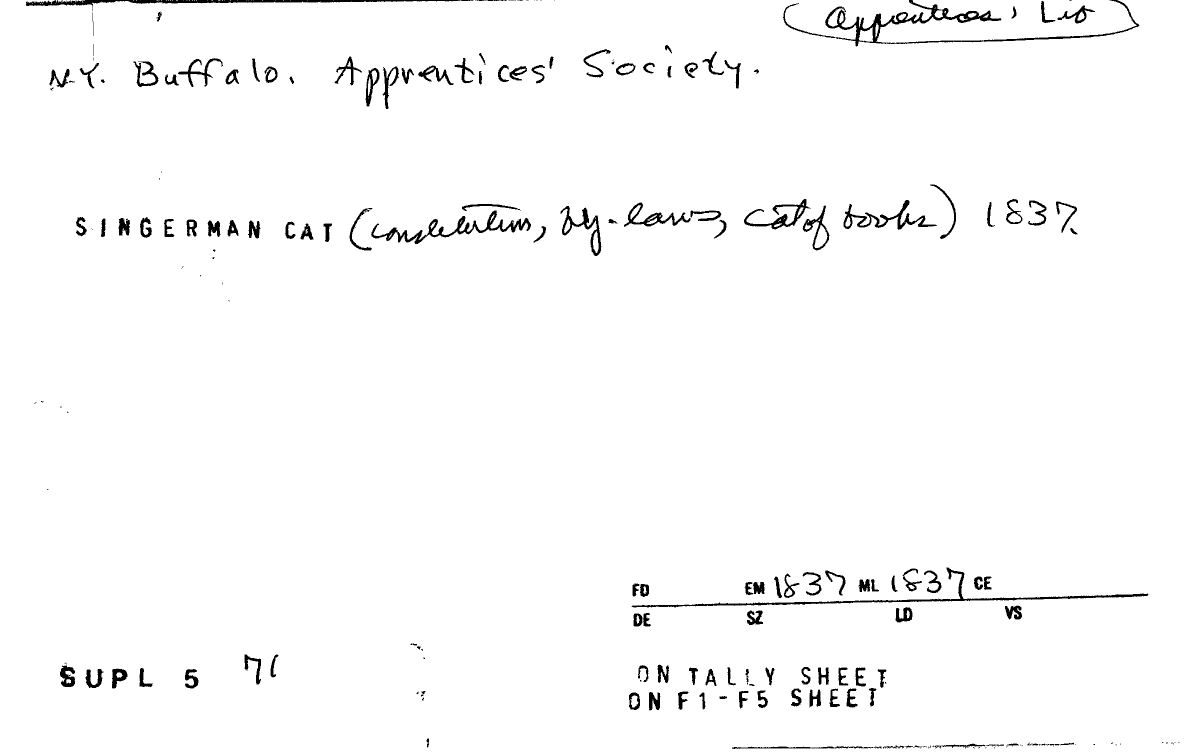 Apprentices' Lib
N.Y. Buffalo. Apprentices' Society.
SINGERMAN CAT (constitution, by-laws, cat of books) 1837.
FD EM 1837 ML 1837 CE
DE SZ LD VS
SUPL 5 71
ON TALLY SHEET
ON F1-F5 SHEET